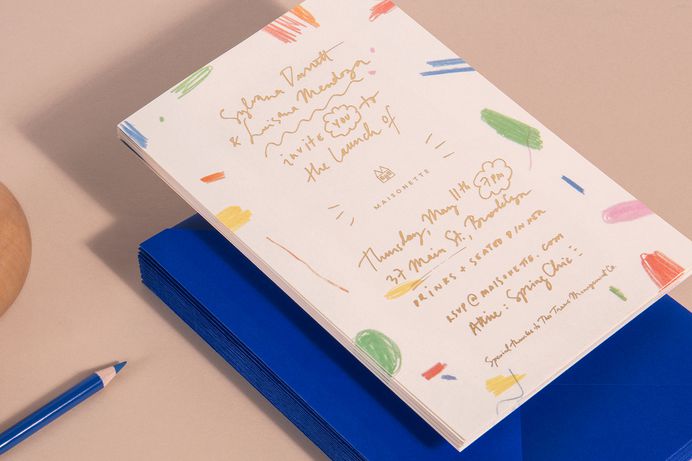 Sylvana Durrett
& Luisana Mendoza
invite YOU to
the Launch of
MAISONETTE
Thursday, May 11th 7PM
37 Main St., Brooklyn
DRINKS + SEATED DINNER
RSVP@MAISONETTE.COM
Attire: Spring Chic
Special thanks to The Management Co.